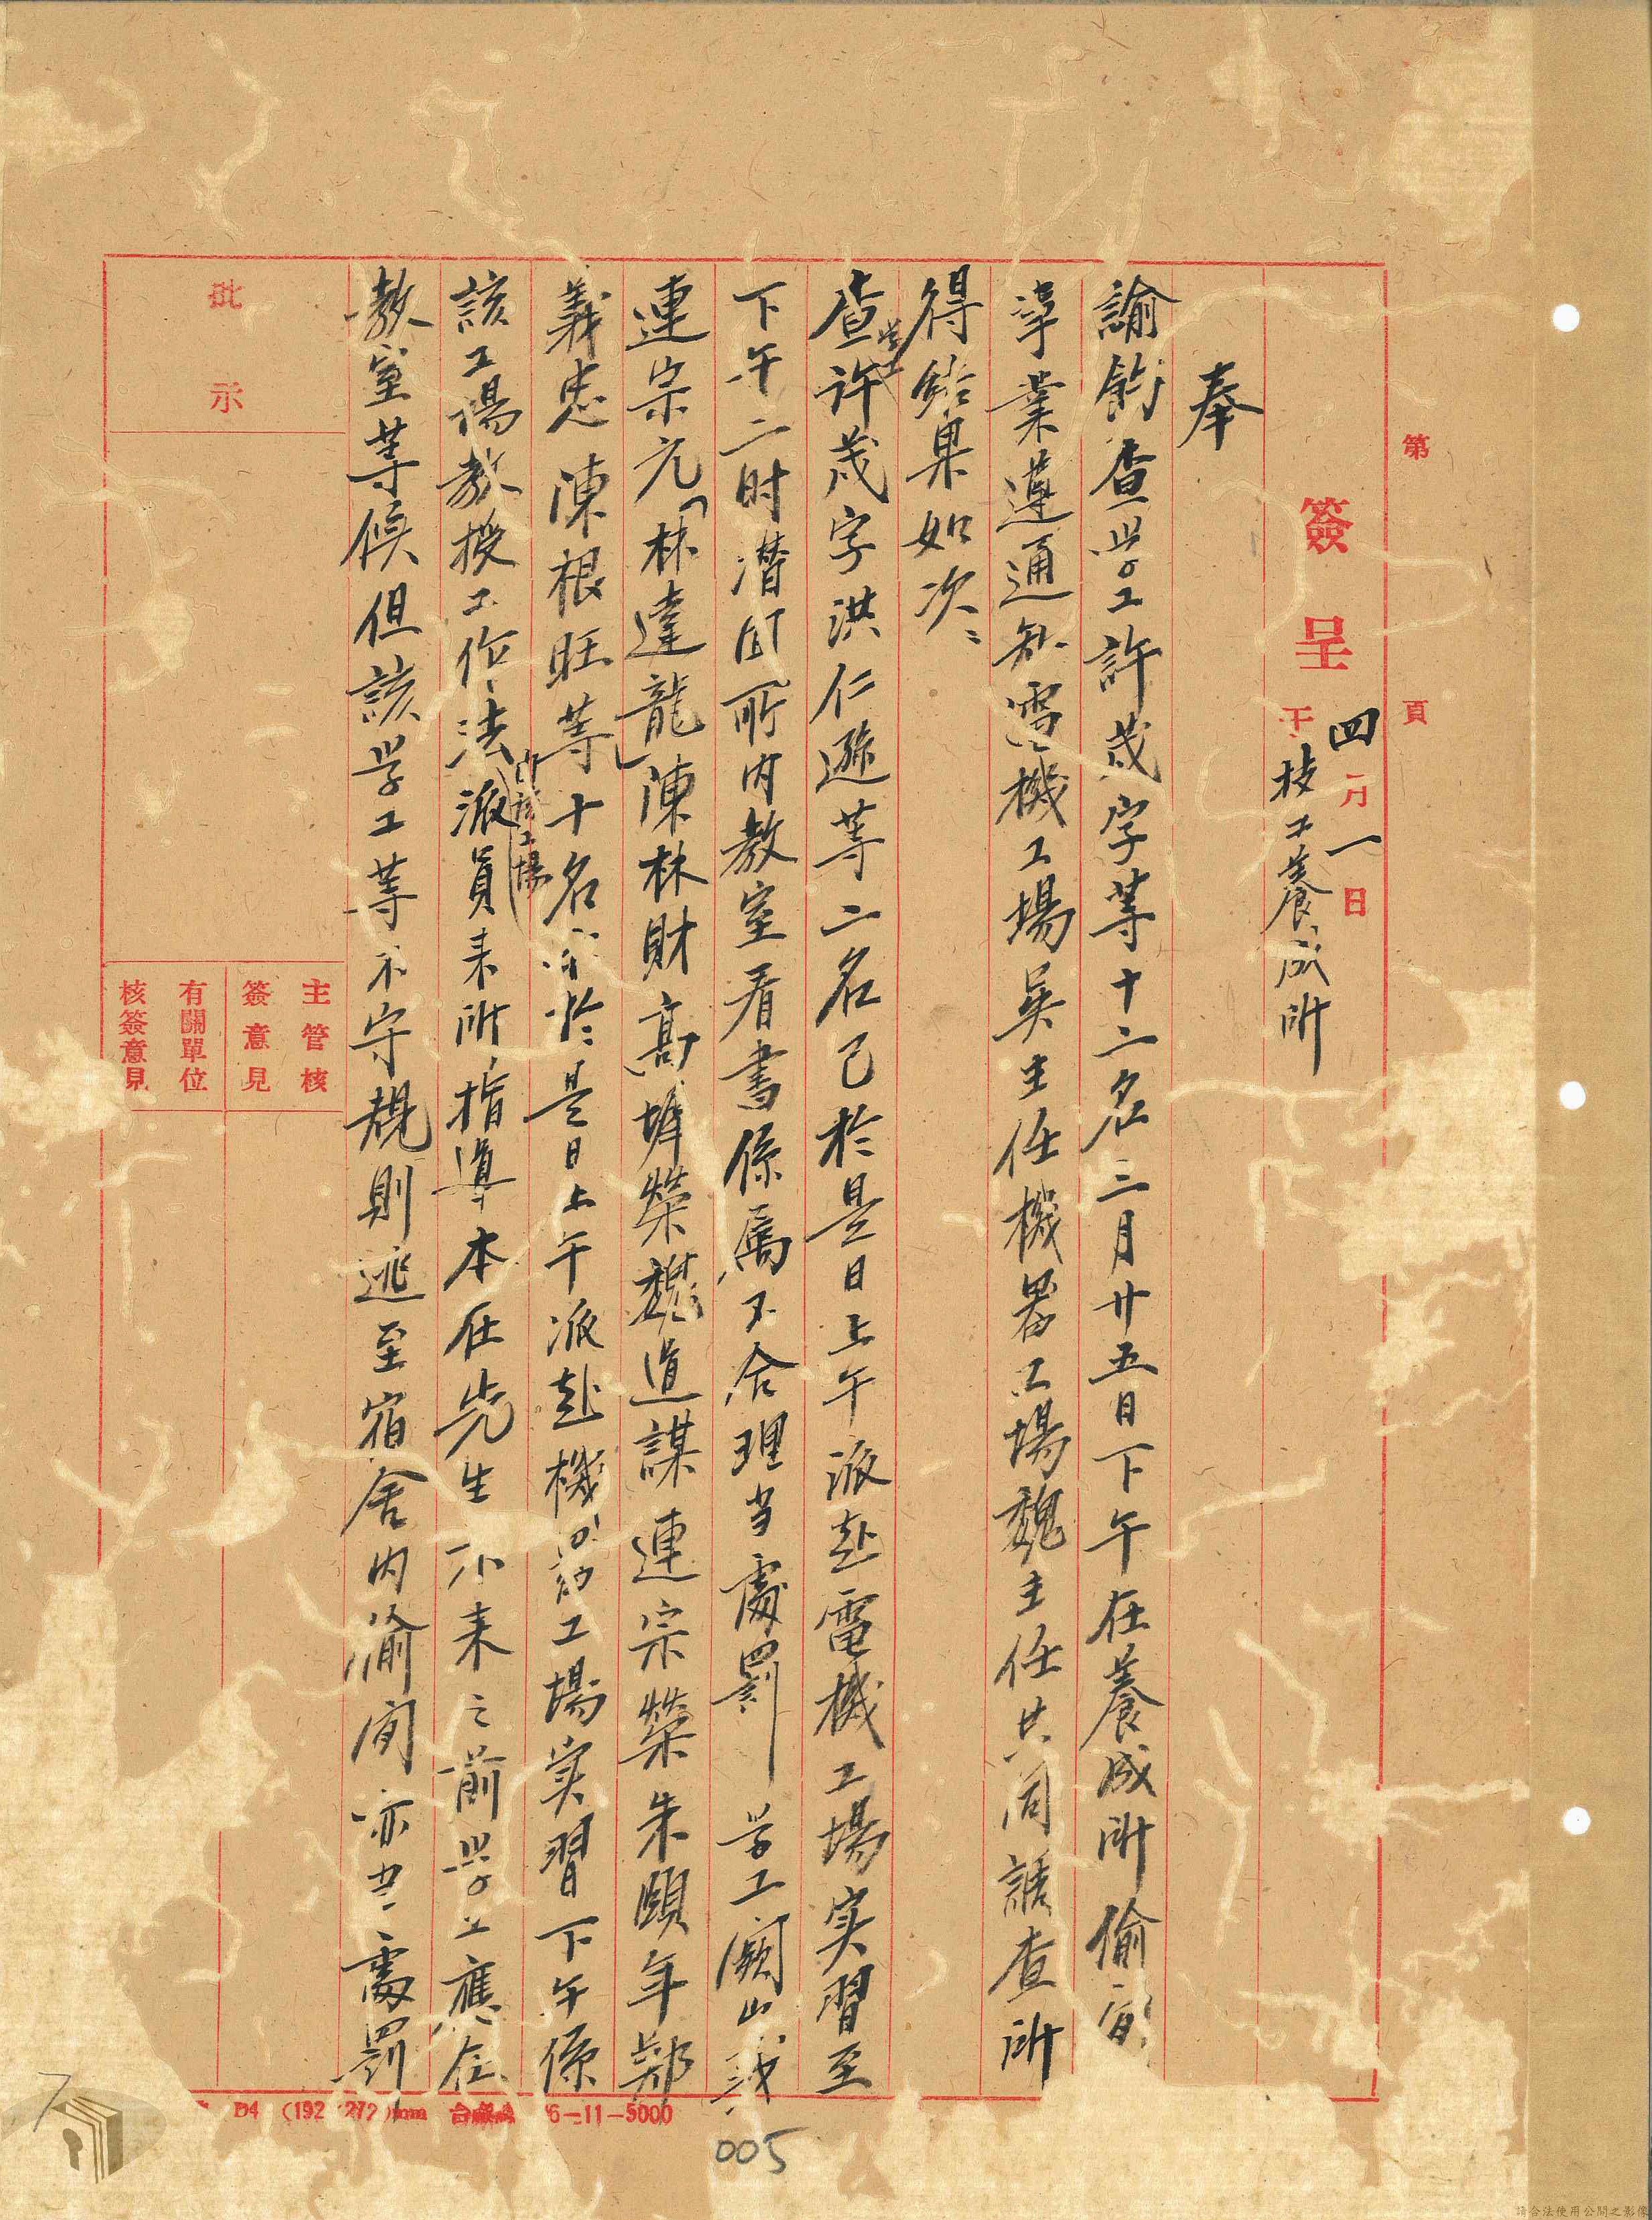 第　頁
簽呈　四月一日
于技工養成所
奉
諭飭查學工許茂字等十二名三月廿五日下午在養成所偷
事業遵通知電機工場吳主任機器工場魏主任共同調查所
得結果如次:
查學工許茂字洪仁遜等二名已於是日上午派赴電機工場实習至
下午二时潛回所内教室看書係屬不合理当處罰　学工闕山
連宗元「林達龍」陳林財高坤榮魏道謀連宗榮朱頤年鄭
義忠陳根旺等十名於是日上午派赴機器工場实習下午係
在該工場
該工場教授工作法派員来所指導本任先生不来之前學工應在
教室等候但該学工等不守規則逃至宿舍内偷閑亦是處罰
主管核
簽意見
有關單位
核簽意見
批示
D4 (192 272)mm 6-11-5000
005
7
請合法使用公開之影像